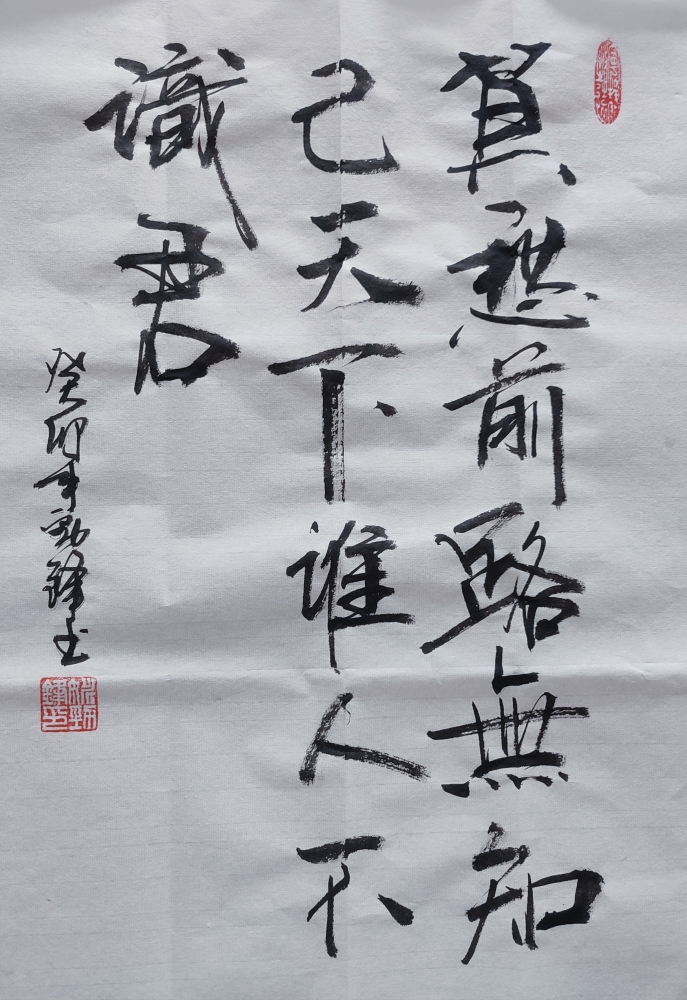 莫愁前路無知
己天下誰人不
識君
癸卯年勁鋒书